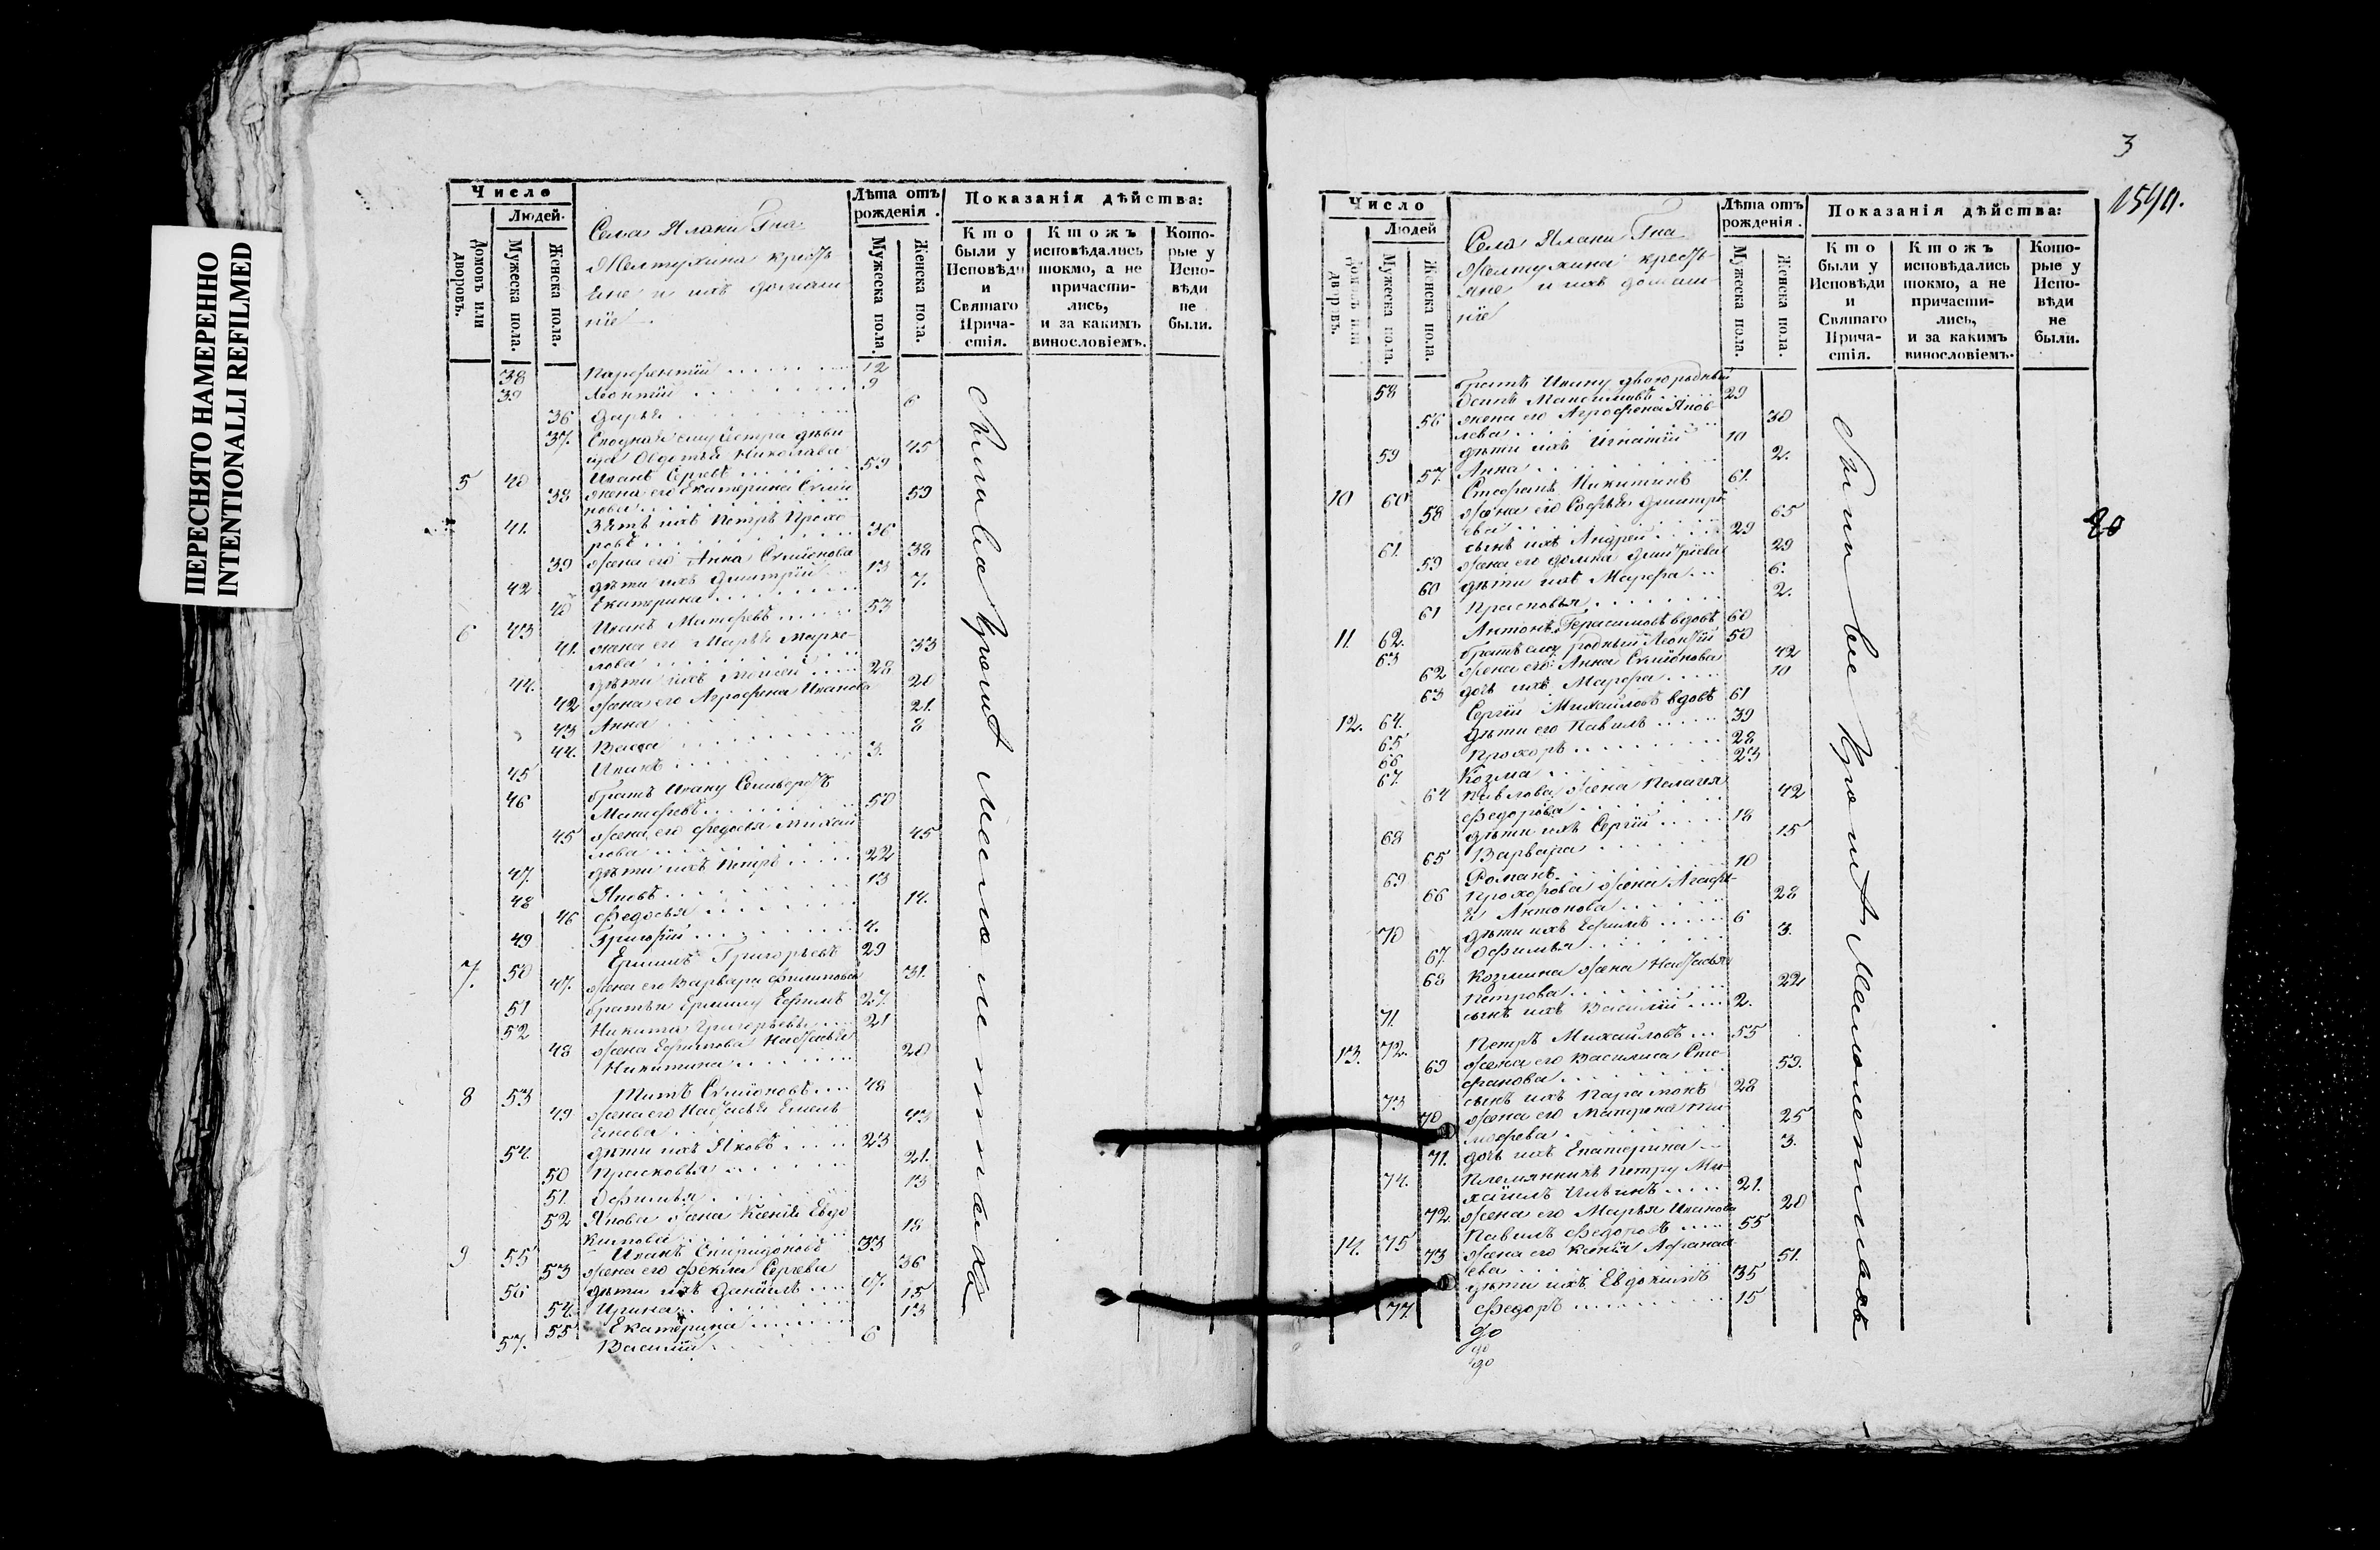 ПЕРЕСНЯТО НАМЕРЕННО
INTENTIONALLI REFILMED
Число
Людей.
Домовъ или дворовъ.
Мужеска пола.
Женска пола.
Села Ялани Гна
Желтухина кресть
яне и ихъ домаш
ніе
Лѣта отъ рожденія.
Мужеска пола.
Женска пола.
Показанія дѣйства:
Кто были у Исповѣди и Святаго Прича-стія.
Ктожъ исповѣдались токмо, а не причасти-лись, и за какимъ винословіемъ.
Кото-рые у Испо-вѣди не были.
38 Парфентій 12
39 Леонтій 9
36 Дарья 6
37. сестра дѣви
ца Авдотья Николаева 45
5 40 Иванъ Сергѣевъ 59
38 жена его Екатерина Семіо
нова 59
41. Зять ихъ Петръ Прохо
ровъ 36
39 жена его Анна Семіонова 38
42 дѣти ихъ Дмитрій 13
40 Екатерина 7.
6 43 Иванъ Матфеевъ 53
41. жена его Марья Марке-
лова 33
44. дѣти ихъ Моисей 28
42 жена его Агрофена Иванова 20
43 Анна 21.
44. Васса 8
45 Иванъ 3.
46 братъ Ивану
Матфеевъ 50
45 жена его Федосья Михай
лова 45
47. дѣти ихъ Петръ 22
48 Яковъ 13
46 Федосья 14.
49 Григорій 4.
7. 50 Григорьевъ 29
47. жена его Варвара Филиппова 31.
51 братья Ефимъ 27.
52 Никита Григорьевы 21
48 жена Ефимова Настасья
Никитина 20
8 53 Титъ Семіоновъ 48
49 жена его Настасья Емель
янова 43
54. дѣти ихъ Яковъ 23
50 Прасковья 21.
51. Офимья 13
52 Якова жена Ксенія Евдо
кимова 18
9 55 Иванъ Спиридоновъ 33
53 жена его Фекла Сергеева 36
56 дѣти ихъ Даніилъ 17.
54. Ирина 15
55 Екатерина 13
57. Василій 6
3
1594.
20
Число
Людей
Мужеска пола.
Женска пола.
Села Ялани Гна
Желтухина кресть-
яне и ихъ домаш-
ніе
Лѣта отъ рожденія.
Мужеска пола.
Женска пола.
Показанія дѣйства:
Кто были у Исповѣди и Святаго Прича-стія.
Ктожъ исповѣдались токмо, а не причасти-лись, и за какимъ винословіемъ.
Кото-рые у Испо-вѣди не были.
58 братъ Ивану двоюродный
Осипъ Максимовъ 29
56 жена его Агрофена Яков-
лева 30
59 дѣти ихъ Игнатій 10
57. Анна 2.
10 60 Стефанъ Никитинъ 61.
58 жена его Софья Дмитрі
ева 65
61. сынъ ихъ Андрей 29
59 жена его Домна Дмитріева 29
60 дѣти ихъ Марфа 6.
61 Прасковья 2.
11. 62. Антонъ Герасимовъ вдовъ 60
63 братъ ему родный Леонтій 50
62 жена его Анна Семіонова 42
63 дочь ихъ Марфа 10
12. 64. Сергій Михайловъ вдовъ 61
65 дѣти его Павелъ 39
66 Прохоръ 28
67. Козма 23
64 Павлова жена Палагея
Федорова 42
68 дѣти ихъ Сергій 18
65 Варвара 15
69 Романъ 10
66 Прохорова жена Агафі-
я Антонова 28
70 дѣти ихъ Ефимъ 6
67. Офимья 3.
68 Козмина жена Настасья
Петрова 22
71. сынъ ихъ Василій 2.
13. 72. Петръ Михайловъ 55
69 жена его Василиса Сте
фанова 59.
73 сынъ ихъ Парамонъ 28
70 жена его Матрена Ти
мофеева 25
71. дочь ихъ Екатерина 3.
74. Племянникъ Петру Ми-
хаилъ 21.
72. жена его Марья Иванова 20
14. 75 Павелъ Федоровъ 55
73 жена его Ксенія Афанась
ева 51.
дѣти ихъ Евдокимъ 35
77. Федоръ 15